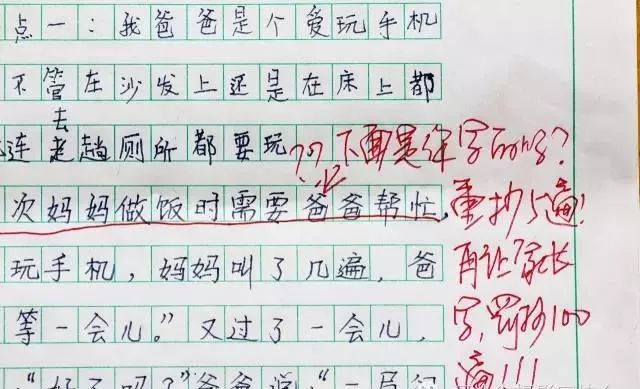 点一：我爸爸是个爱玩手机
不管在沙发上还是在床上都
去
连 趟厕所都要玩
次妈妈做饭时需要爸爸帮忙，
玩手机，妈妈叫了几遍，爸
等一会儿。”又过了一会儿，
“好了吗？”爸爸说：“一
？？下面是你写的吗？
重抄5遍！
再让家长
字，罚抄100
遍！！！